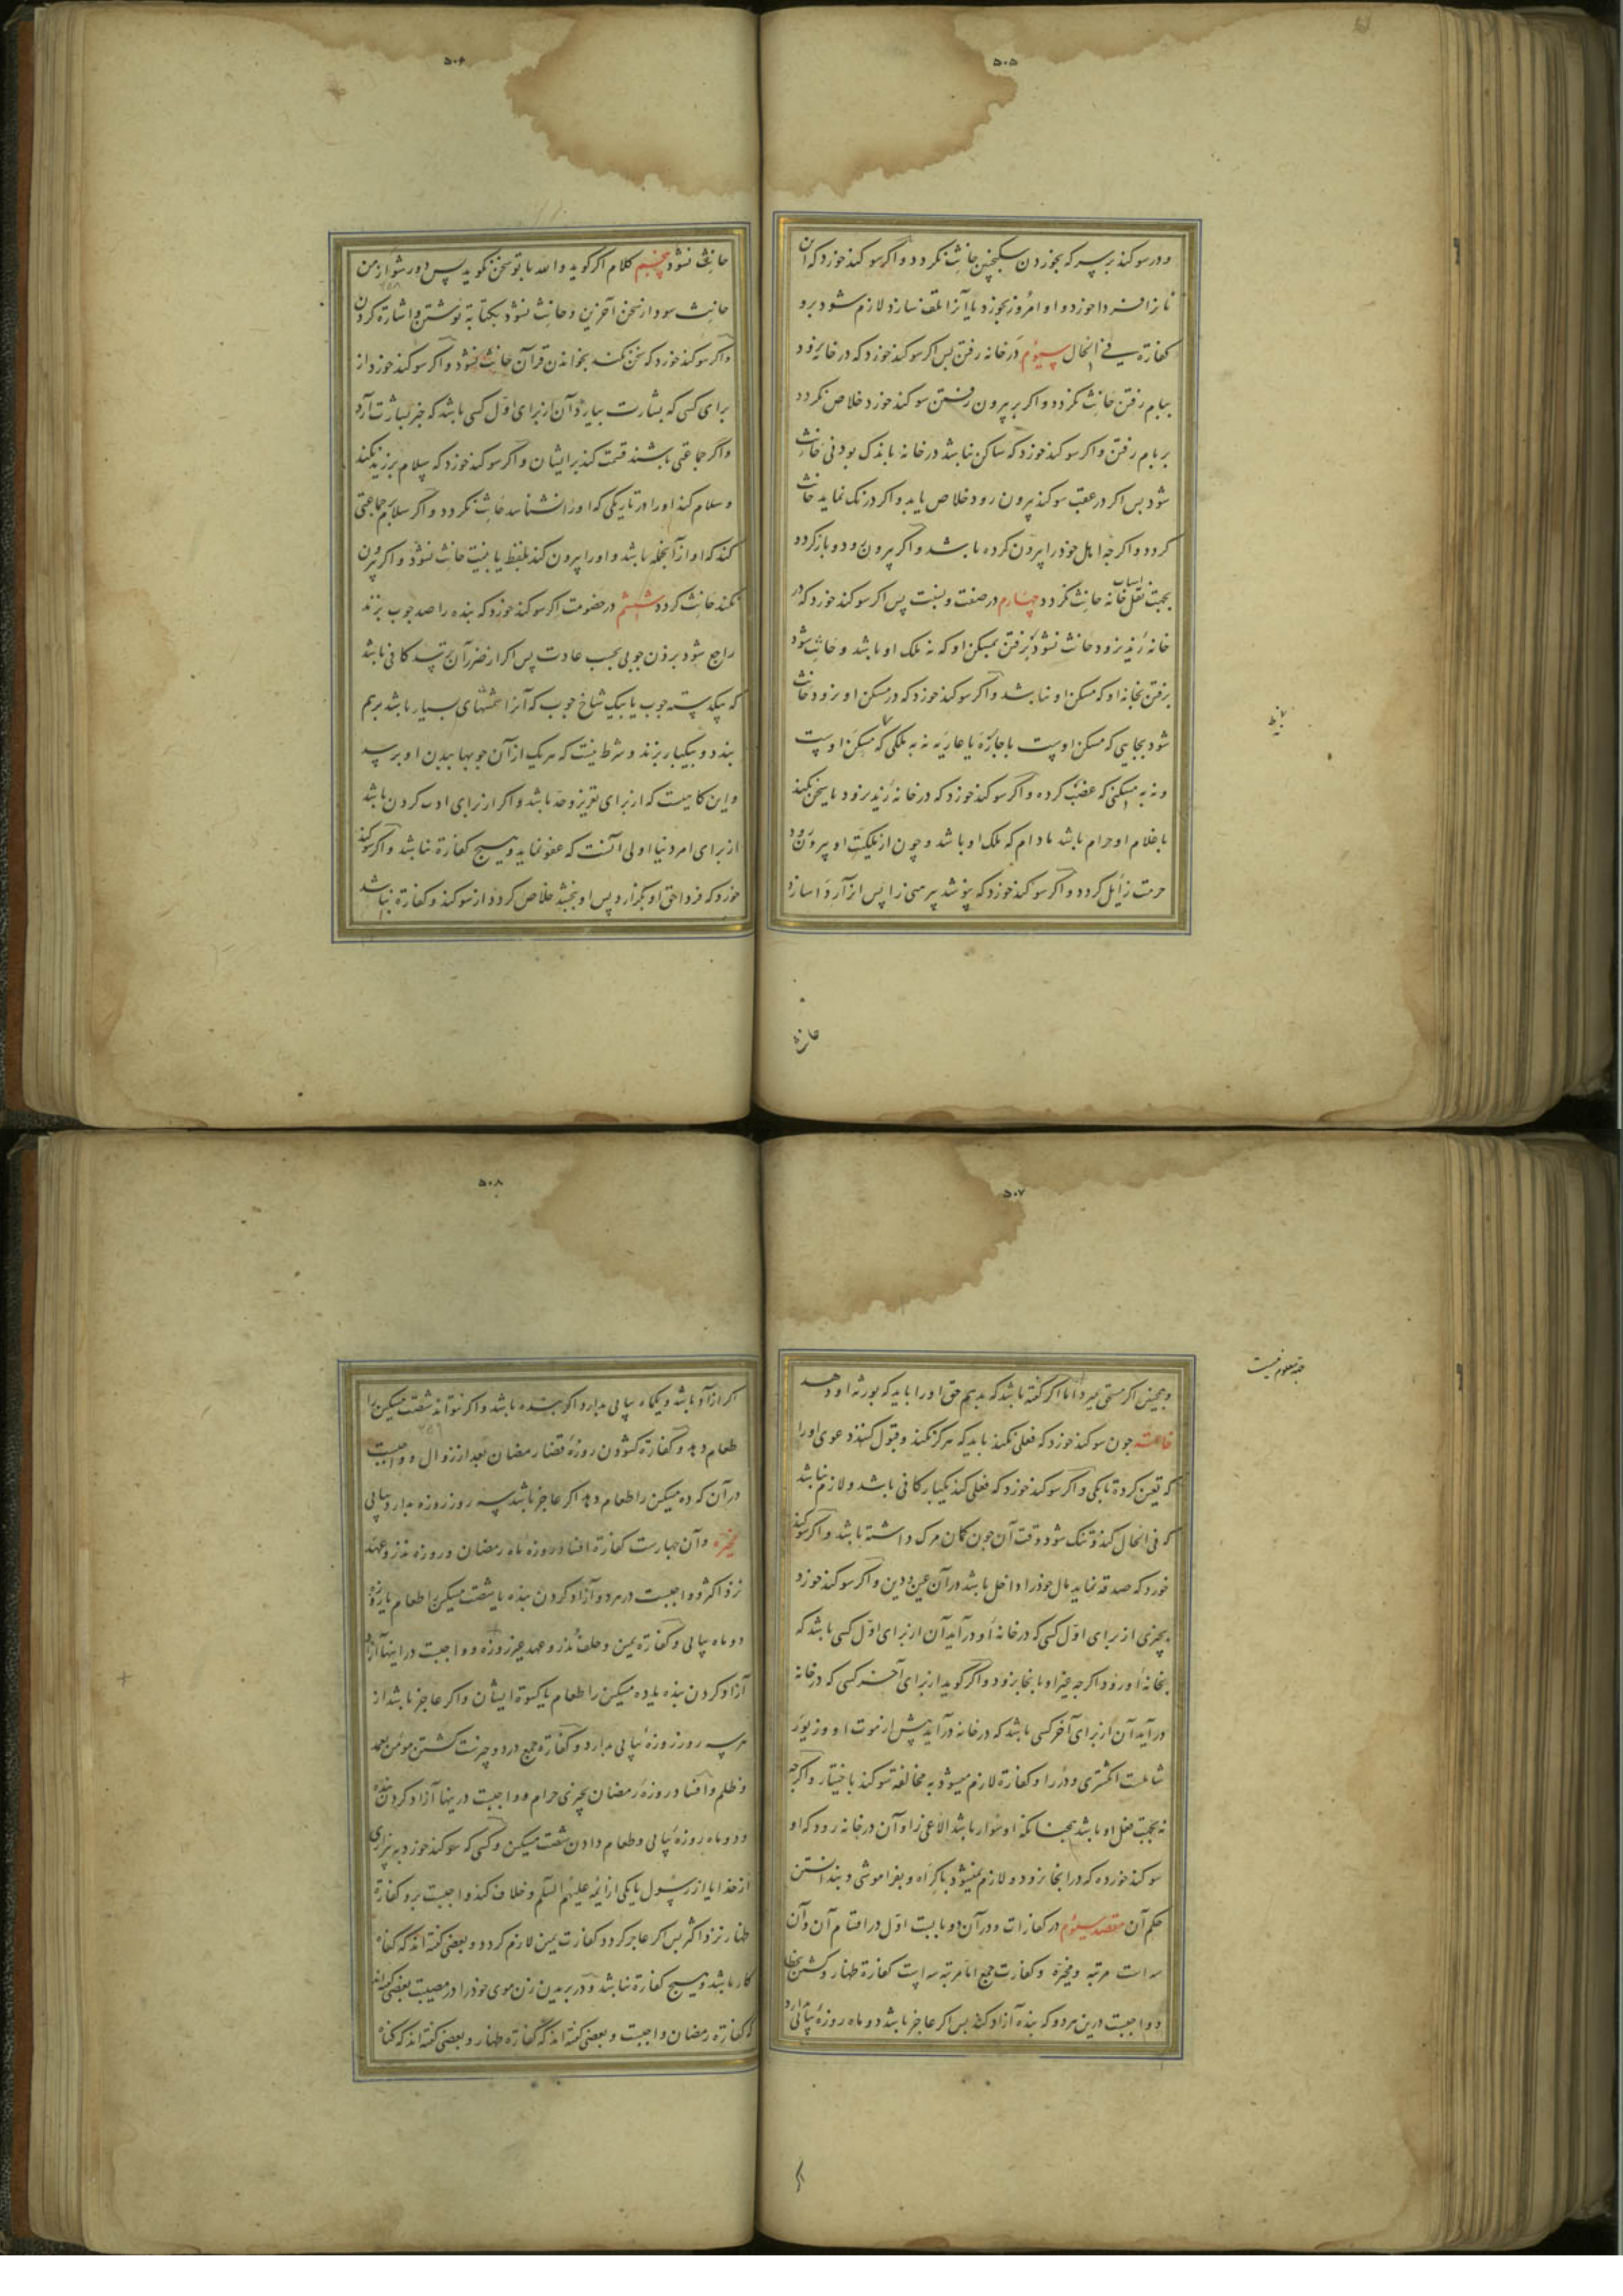 ۵۰۵
ودر سوکند بر سرکه بخوردن سکنجبین حانث نکردد واکر سوکند خورد که این
نانرا فردا خورد واو امروز بخورد یا آنرا تلف سازد لازم شود برو
کفارة فی الحال سیوم در خانه رفتن بس اکر سوکند خورد که در خانه نرود
ببام رفتن حانث نکردد واکر بر بیرون رفتن سوکند خورد خلاص نکردد
بر بام رفتن واکر سوکند خورد که ساکن نباشد در خانه باندک بودنی حانث
شود بس اکر در عقب سوکند بیرون رود خلاص یابد واکر درنک نماید حانث
کردد واکرجه اهل خودرا بیرون کرده باشد واکر بیرون رود وباز کردد
بجهت نقل اسباب خانه حانث نکردد چهارم در صنعت ونسبت پس اکر سوکند خورد که در
خانهٔ زید نرود حانث نشود برفتن بمسکن او که نه ملک او باشد وحانث شود
برفتن بخانهٔ او که مسکن او نباشد واکر سوکند خورد که در مسکن او نرود حانث
شود بجایی که مسکن اوست باجاره یا عاریه نه به ملکی که مسکن اوست
ونه به مسکنی که غصب کرده واکر سوکند خورد که در خانهٔ زید نرود یا سخن نکند
با غلام او حرام باشد مادام که ملک او باشد وچون از ملکیت او بیرون رود
حرمت زایل کردد واکر سوکند خورد که نپوشد پیرهنی را پس از آن ردا سازد
حانث
۵۰۶
حانث نشود پنجم کلام اکر کوید والله با تو سخن نکوید پس دور شو از من
حانث شود از سخن آخرین وحانث نشود بکتابه نوشتن واشارة کردن
واکر سوکند خورد که سخن نکند بخواندن قرآن حانث نشود واکر سوکند خورد از
برای کسی که بشارت بیارد آن از برای اوّل کسی باشد که خبر بشارت آرد
واکر جماعتی باشند قسمت کند بر ایشان واکر سوکند خورد که سلام بر زید نکند
وسلام کند اورا در تاریکی که اورا نشناسد حانث نکردد واکر سلام بر جماعتی
کند که او از آنجمله باشد واورا بیرون کند بلفظ یا بنیت حانث نشود واکر بیرون
نکند حانث کردد ششم در خصومت اکر سوکند خورد که بنده را صد جوب بزند
راجع شود بزدن جوبی بحسب عادت پس اکر از ضرر آن ترسد کافی باشد
که یکدسته جوب یا بیک شاخ جوب که آنرا شمشهای بسیار باشد برهم
بندد وبیکبار بزند وشرط نیست که هر یک از آن جوبها ببدن او برسد
واین کاهیست که از برای تعزیر وحد باشد واکر از برای ادب کردن باشد
از برای امر دنیا اولی آنست که عفو نماید وهیچ کفارة نباشد واکر سوکند
خورد که فردا حق او بکزارد پس او ببخشد خلاص کردد از سوکند وکفارة نباشد
۵۰۷
وهمچنین اکر مستحق بمیرد اما اکر کفته باشد که بدهیم حق اورا باید که بورثهٔ او دهد
خاتمه جون سوکند خورد که فعلی نکند باید که هرکز نکند وقبول کنند دعوی اورا
که تعیین کرده تا یکی واکر سوکند خورد که فعلی کند یکبار کافی باشد ولازم نباشد
که فی الحال کند وتنک شود وقت آن جون کمان مرک داشته باشد واکر سوکند
خورد که صدقه نماید مال خودرا داخل باشد در آن عین ودین واکر سوکند خورد
بچیزی از برای اوّل کسی که در خانهٔ او درآید آن از برای اوّل کسی باشد که
بخانهٔ او رود اکرجه غیر او بآنجا نرود واکر کوید از برای آخر کسی که در خانه
درآید آن از برای آخر کسی باشد که در خانه درآید پیش از موت او وزیور
شاملست انکشتری ودر را وکفارة لازم میشود به مخالفة سوکند باختیار واکرجه
نه بجهت فعل او باشد همجنانکه او سوار باشد الاغی را وآن در خانه رود که او
سوکند خورده که در آنجا نرود ولازم نمیشود باکراه وبفراموشی وبندانستن
حکم آن مقصد سیوم در کفارات ودر آن دو بابست اوّل در اقسام آن وآن
سه است مرتبه ومخیّره وکفارت جمع اما مرتبه سه است کفارة ظهار وکشتن بخطا
وواجبست درین هردو که بندهٔ آزاد کند بس اکر عاجز باشد دو ماه روزهٔ پیاپی دارد
۵۰۸
اکر آزاد باشد ویکماه پیاپی بدارد اکر بنده باشد واکر نتواند شصت مسکین را
طعام دهد وکفارة کشودن روزهٔ قضاء رمضان بعد از زوال وواجبست
در آن که ده مسکین را طعام دهد اکر عاجز باشد سه روز روزه بدارد پیاپی
مخیّره وآن جهارست کفارة افطار روزهٔ ماه رمضان وروزهٔ نذر وعهد
نزد اکثر وواجبست در هردو آزاد کردن بنده یا شصت مسکین را طعام یا روزهٔ
دو ماه پیاپی وکفارة یمین وخلف نذر وعهد غیر روزه وواجبست در اینها
آزاد کردن بنده یا ده مسکین را طعام یا کسوة ایشان واکر عاجز باشد از
هر سه روز روزهٔ پیاپی بدارد وکفارة جمع در دو چیزست کشتن مؤمن بعمد
وظلم وافطار روزهٔ رمضان بچیزی حرام وواجبست درینها آزاد کردن بنده
ودو ماه روزهٔ پیاپی وطعام دادن شصت مسکین وکسی که سوکند خورد به بیزاری
از خدا یا از رسول یا یکی از ائمه علیهم السلم وخلاف کند واجبست برو کفارة
ظهار نزد اکثر بس اکر عاجز کردد کفارت یمین لازم کردد وبعضی کفته اند که کناه
کار باشد وهیچ کفارة نباشد ودر بریدن زن موی خودرا در مصیبت بعضی کفته اند
که کفارة رمضان واجبست وبعضی کفته اند که کفارة ظهار وبعضی کفته اند که کناه